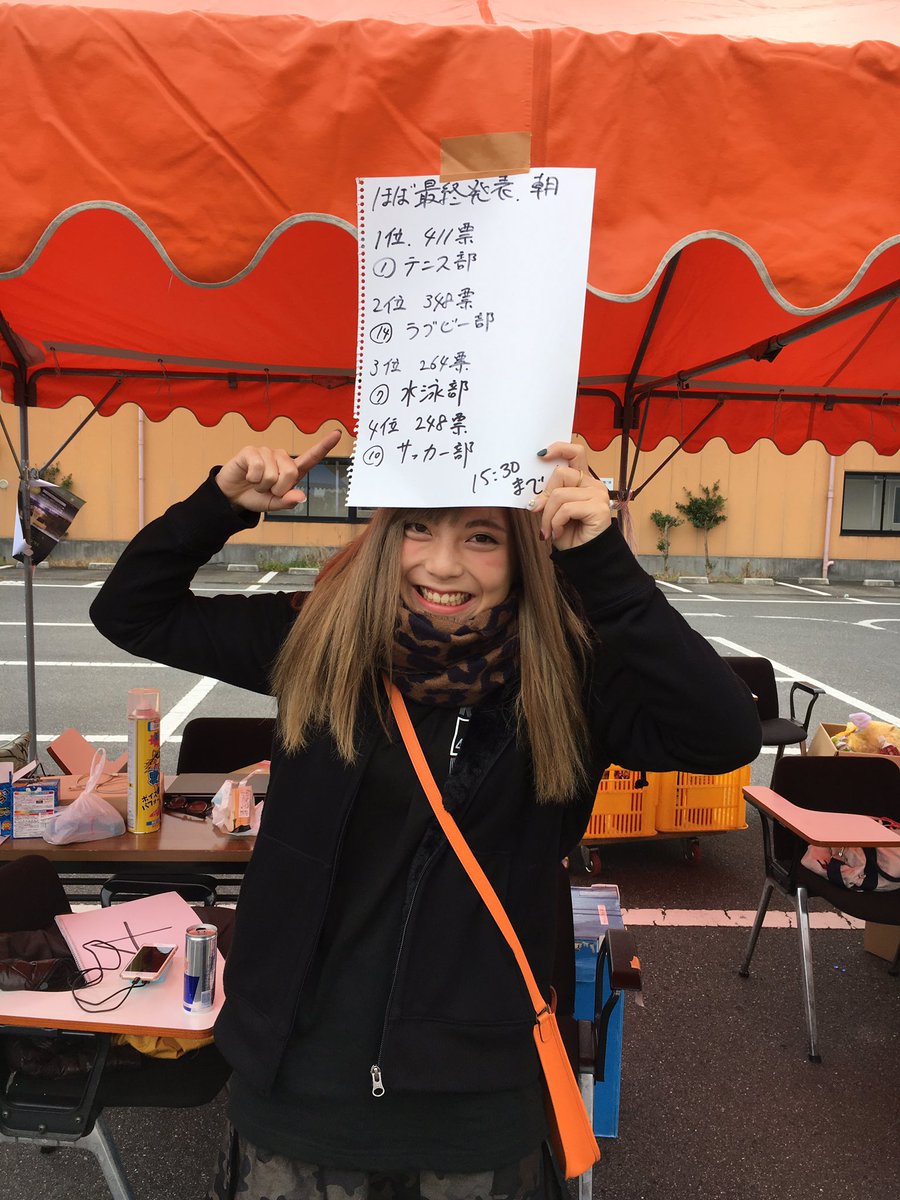 ほぼ最終発表.朝
1位. 411票
① テニス部
2位 348票
⑭ ラブビー部
3位 264票
⑦ 水泳部
4位 248票
⑩ サッカー部
15:30
まで